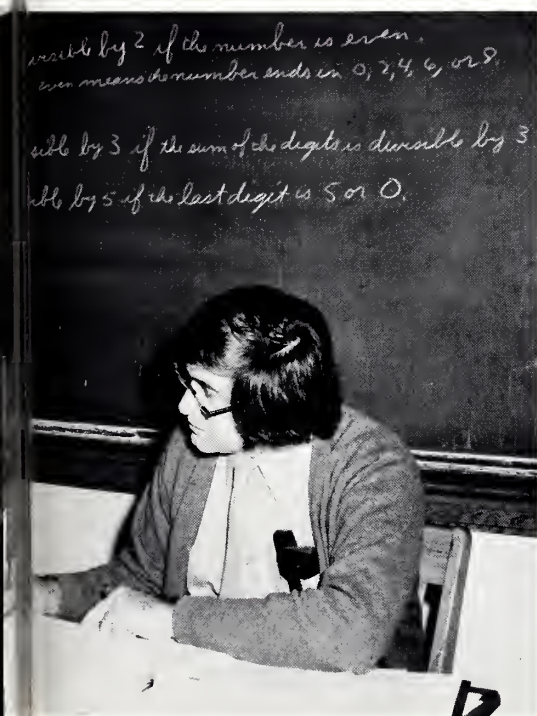 visible by 2 if the number is even.
even means the number ends in 0, 2, 4, 6, or 8.
sible by 3 if the sum of the digits is divisible by 3
ible by 5 if the last digit is 5 or 0.